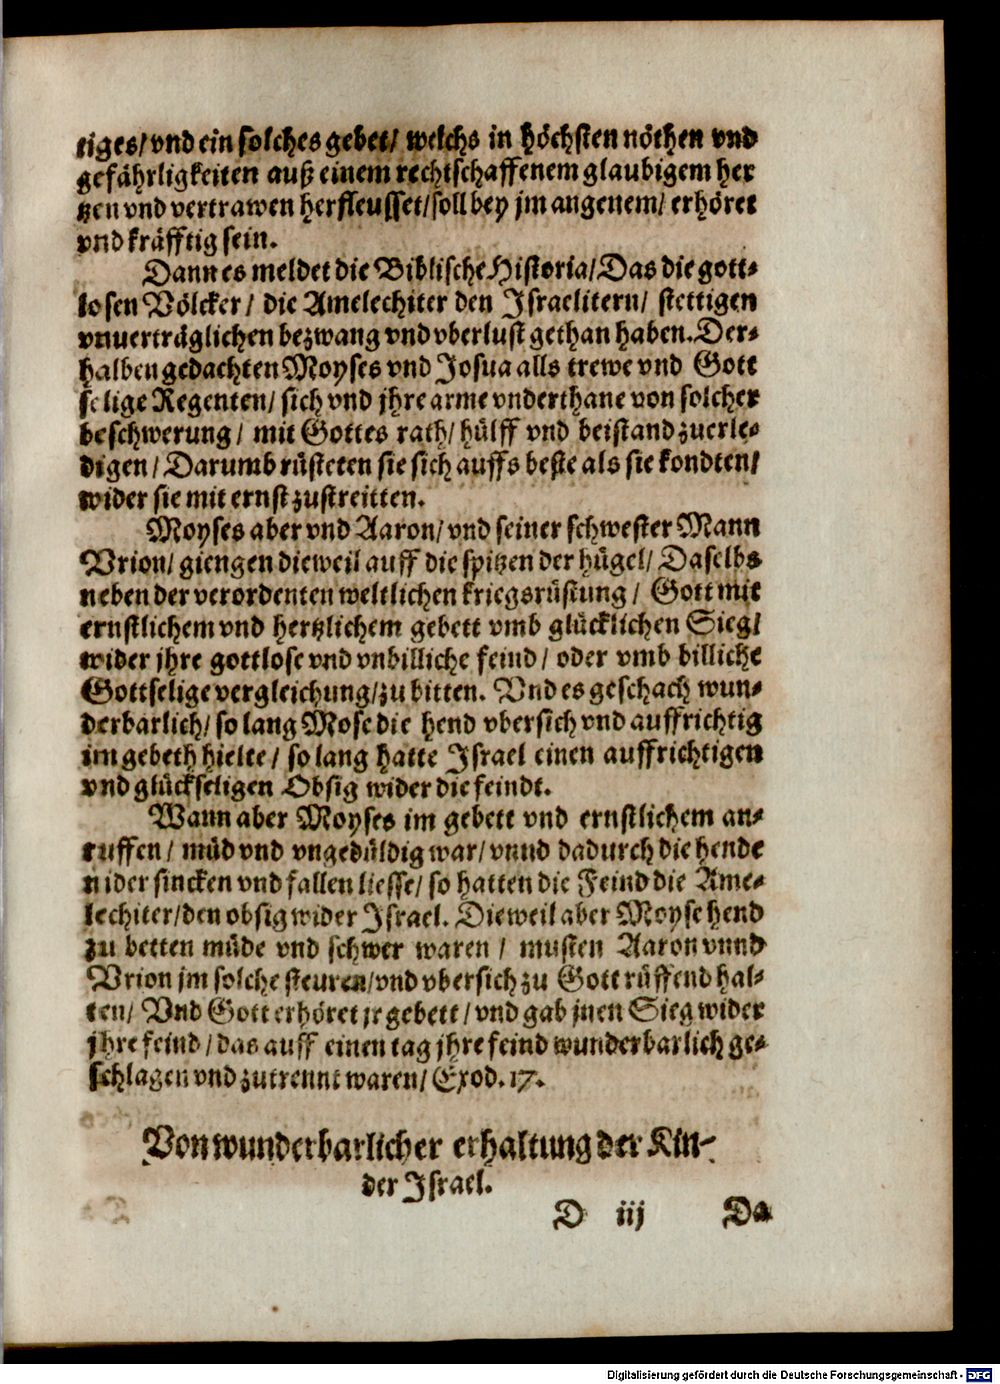 tiges/ vnd ein solches gebet/ welchs in höchsten nöthen vnd
gefährligkeiten auß einem rechtschaffenem glaubigem her
tzen vnd vertrawen herfleusset/ soll bey jm angenem/ erhöret
vnd kräfftig sein.
Dann es meldet die Biblische Historia/ Das die gott-
losen Völcker/ die Amelechiter den Israelitern/ stettigen
vnuerträglichen bezwang vnd vberlust gethan haben. Der-
halben gedachten Moyses vnd Josua alls trewe vnd Gott
selige Regenten/ sich vnd jhre arme vnderthane von solcher
beschwerung/ mit Gottes rath/ hülff vnd beistand zuerle-
digen/ Darumb rüsteten sie sich auffs beste als sie kondten/
wider sie mit ernst zustreitten.
Moyses aber vnd Aaron/ vnd seiner schwester Mann
Vrion/ giengen dieweil auff die spitzen der hügel/ Daselbs
neben der verordenten weltlichen kriegsrüstung/ Gott mit
ernstlichem vnd hertzlichem gebett vmb glücklichen Sieg/
wider jhre gottlose vnd vnbilliche feind/ oder vmb billiche
Gottselige vergleichung/ zu bitten. Vnd es geschach wun-
derbarlich/ so lang Mose die hend vbersich vnd auffrichtig
im gebeth hielte/ so lang hatte Israel einen auffrichtigen
vnd glückseligen Obsig wider die feindt.
Wann aber Moyses im gebett vnd ernstlichem an-
ruffen/ müd vnd vngedüldig war/ vnnd dadurch die hende
nider sincken vnd fallen liesse/ so hatten die Feind die Ame-
lechiter/ den obsig wider Israel. Dieweil aber Moyse hend
zu betten müde vnd schwer waren/ musten Aaron vnnd
Vrion jm solche steuren/ vnd vbersich zu Gott rüffend hal-
ten/ Vnd Gott erhöret jr gebett/ vnd gab jnen Sieg wider
jhre feind/ das auff einen tag jhre feind wunderbarlich ge-
schlagen vnd zutrennt waren/ Exod. 17.
Von wunderbarlicher erhaltung der Kin-
der Israel.
D iij Da
Digitalisierung gefördert durch die Deutsche Forschungsgemeinschaft - DFG